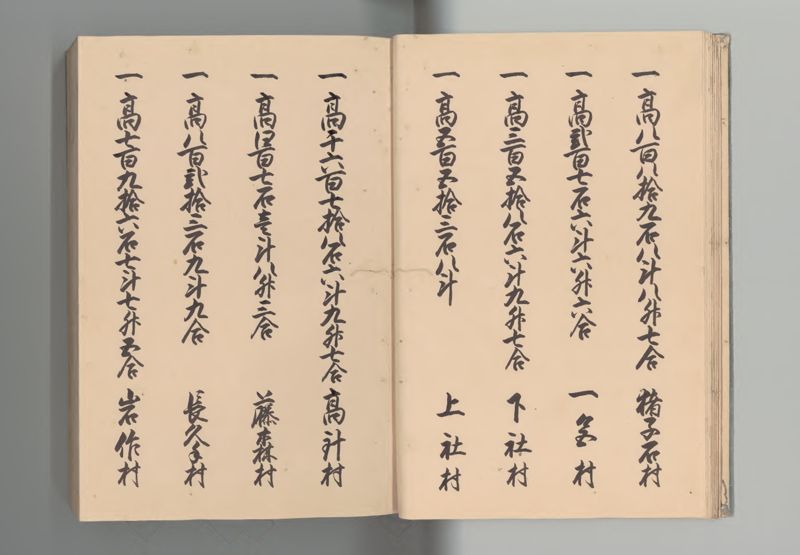 一 高八百八拾九石八斗八升七合 猪子石村
一 高弐百七石六斗六升六合 一色村
一 高三百五拾八石六斗九升七合 下社村
一 高五百五拾三石八斗 上社村
一 高千六百七拾八石六斗九升七合 高針村
一 高四百七石壱斗八升三合 藤森村
一 高八百弐拾三石九斗九合 長久手村
一 高七百九拾六石七斗七升五合 岩作村